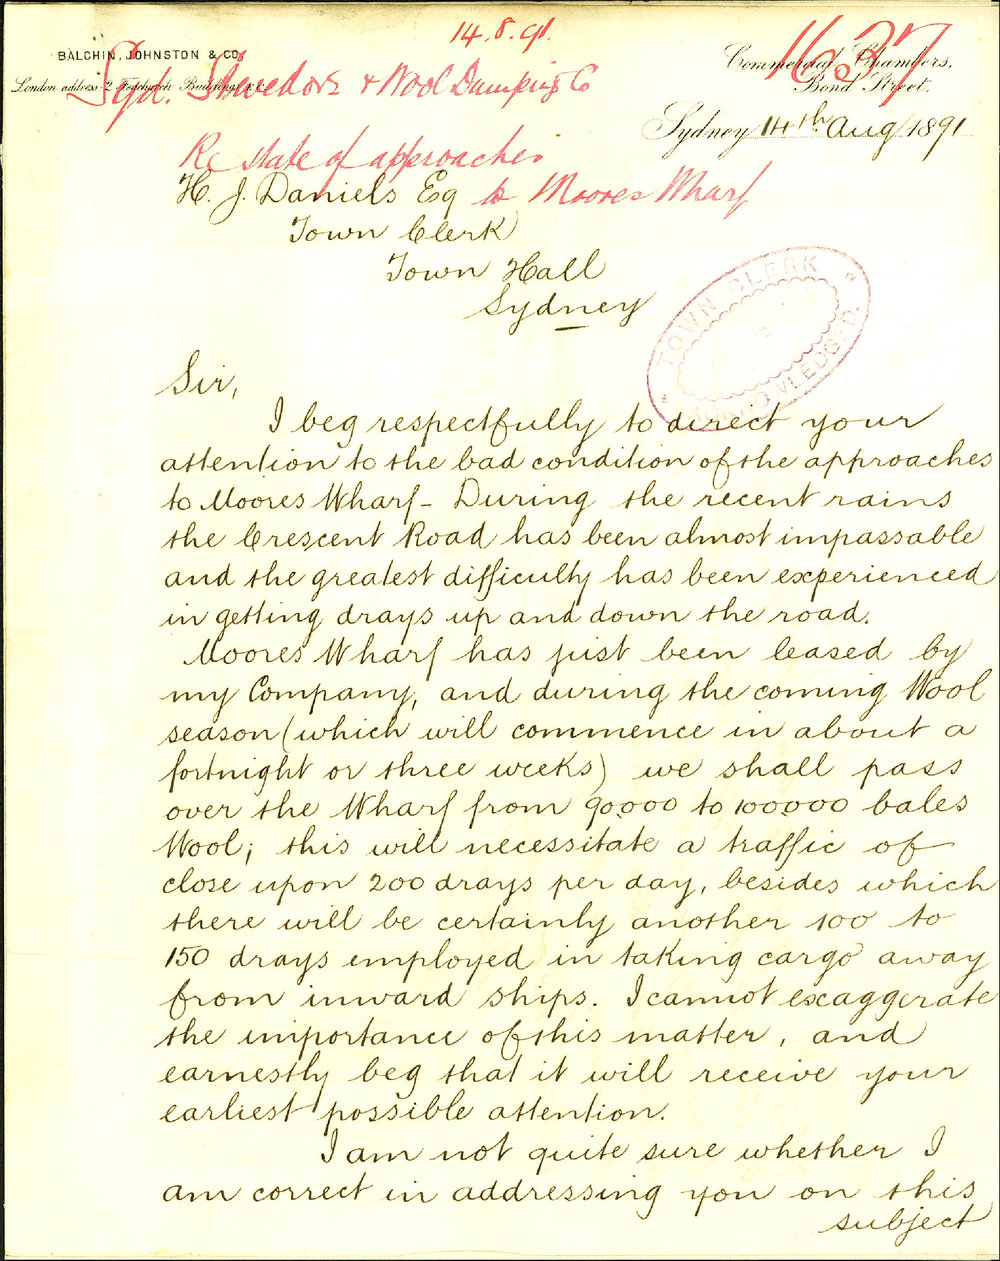 14.8.91.
1637
BALCHIN, JOHNSTON & CO.
London address: 2 Fenchurch Buildings, E.C.
Syd. Stevedore & Wool Dumping Co
Commercial Chambers,
Bond Street,
Sydney 14th Aug 1891
Re state of approaches
to Moores Wharf
H. J. Daniels Esq
Town Clerk
Town Hall
Sydney
TOWN CLERK
ACKNOWLEDG.D.
Sir,
I beg respectfully to direct your
attention to the bad condition of the approaches
to Moores Wharf - During the recent rains
the Crescent Road has been almost impassable
and the greatest difficulty has been experienced
in getting drays up and down the road.
Moores Wharf has just been leased by
my Company, and during the coming Wool
season (which will commence in about a
fortnight or three weeks) we shall pass
over the Wharf from 90000 to 100000 bales
Wool; this will necessitate a traffic of
close upon 200 drays per day, besides which
there will be certainly another 100 to
150 drays employed in taking cargo away
from inward ships. I cannot exaggerate
the importance of this matter, and
earnestly beg that it will receive your
earliest possible attention.
I am not quite sure whether I
am correct in addressing you on this
subject